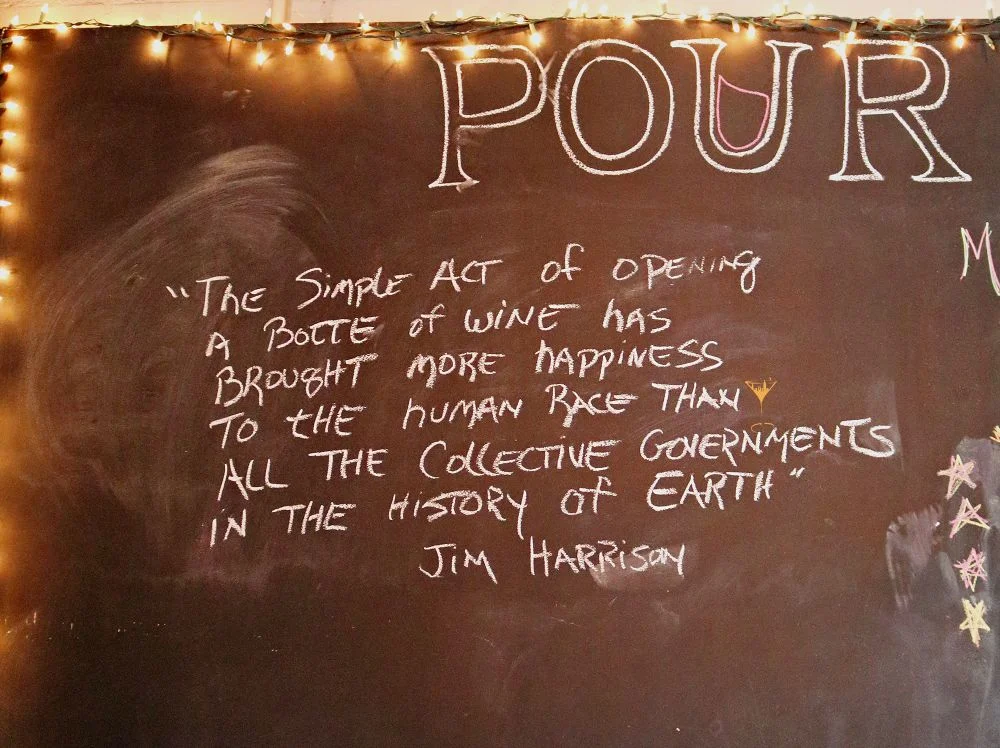 POUR
M
"The Simple ACT of OPENING
A BOTTE of WINE has
BROUGHT MORE hAPPINESS
TO tHE hUMAN RACE THAN
ALL THE COllECTIVE GOVERNMENTS
IN THE HISTORY of EARTH"
JIM HARRISON